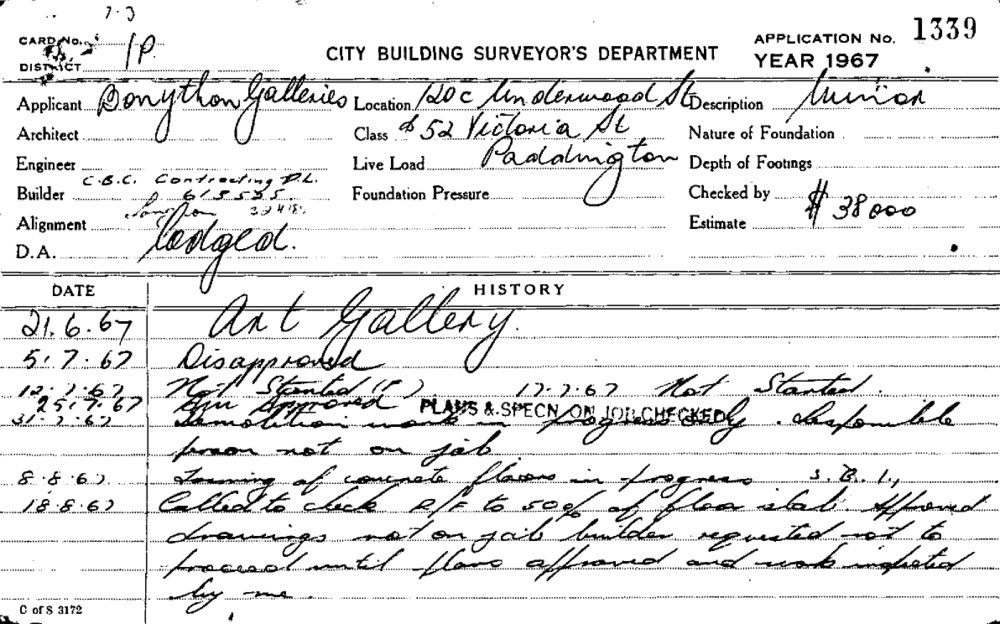 7.3
CARD No.
DISTRICT 1P.
CITY BUILDING SURVEYOR'S DEPARTMENT
APPLICATION No. 1339
YEAR 1967
Applicant Bonython Galleries Location 120c Underwood St Description Minor
Architect Class & 52 Victoria St Nature of Foundation
Engineer Live Load Paddington Depth of Footings
Builder C.B.C. Contracting P.L. Foundation Pressure Checked by
613535
Alignment Estimate $38000
D.A. lodged.
DATE HISTORY
21.6.67 Art Gallery.
5.7.67 Disapproved
12.7.67 Not Started (P) 17.7.67 Not Started.
25.7.67 Approved PLANS & SPECN ON JOB CHECKED
31.7.67 Demolition work in progress only. Responsible
person not on job
8.8.67 Forming of concrete floors in progress S.B.I.,
18.8.67 Called to check R/F to 50% of floor slab. Approved
drawings not on job builder requested not to
proceed until plans approved and work inspected
by me.
C of S 3172